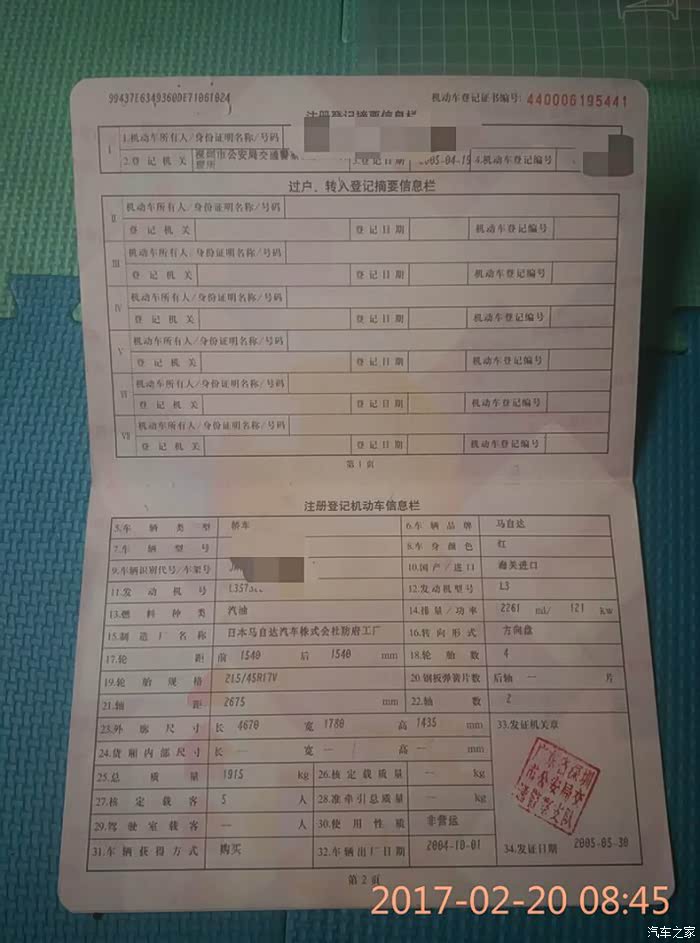 99437E6349360DE71061024 机动车登记证书编号: 440006195441
注册登记摘要信息栏
I 1.机动车所有人/身份证明名称/号码
2.登记机关 深圳市公安局交通警 3.登记日期 2005-04-15 4.机动车登记编号
过户、转入登记摘要信息栏
II 机动车所有人/身份证明名称/号码
登记机关 登记日期 机动车登记编号
III 机动车所有人/身份证明名称/号码
登记机关 登记日期 机动车登记编号
IV 机动车所有人/身份证明名称/号码
登记机关 登记日期 机动车登记编号
V 机动车所有人/身份证明名称/号码
登记机关 登记日期 机动车登记编号
VI 机动车所有人/身份证明名称/号码
登记机关 登记日期 机动车登记编号
VII 机动车所有人/身份证明名称/号码
登记机关 登记日期 机动车登记编号
第1页
注册登记机动车信息栏
5.车辆类型 轿车 6.车辆品牌 马自达
7.车辆型号 8.车身颜色 红
9.车辆识别代号/车架号 10.国产/进口 海关进口
11.发动机号 12.发动机型号 L3
13.燃料种类 汽油 14.排量/功率 2261 ml/ 121 kw
15.制造厂名称 日本马自达汽车株式会社防府工厂 16.转向形式 方向盘
17.轮距 前 1540 后 1540 mm 18.轮胎数 4
19.轮胎规格 215/45R17V 20.钢板弹簧片数 后轴 — 片
21.轴距 2675 mm 22.轴数 2
23.外廓尺寸 长 4670 宽 1780 高 1435 mm 33.发证机关章
24.货厢内部尺寸 长 — 宽 — 高 — mm
25.总质量 1915 kg 26.核定载质量 — kg
27.核定载客 5 人 28.准牵引总质量 — kg
29.驾驶室载客 — 人 30.使用性质 非营运
31.车辆获得方式 购买 32.车辆出厂日期 2004-10-01 34.发证日期 2005-05-30
广东省深圳
市公安局交
通警察支队
第2页
2017-02-20 08:45
汽车之家